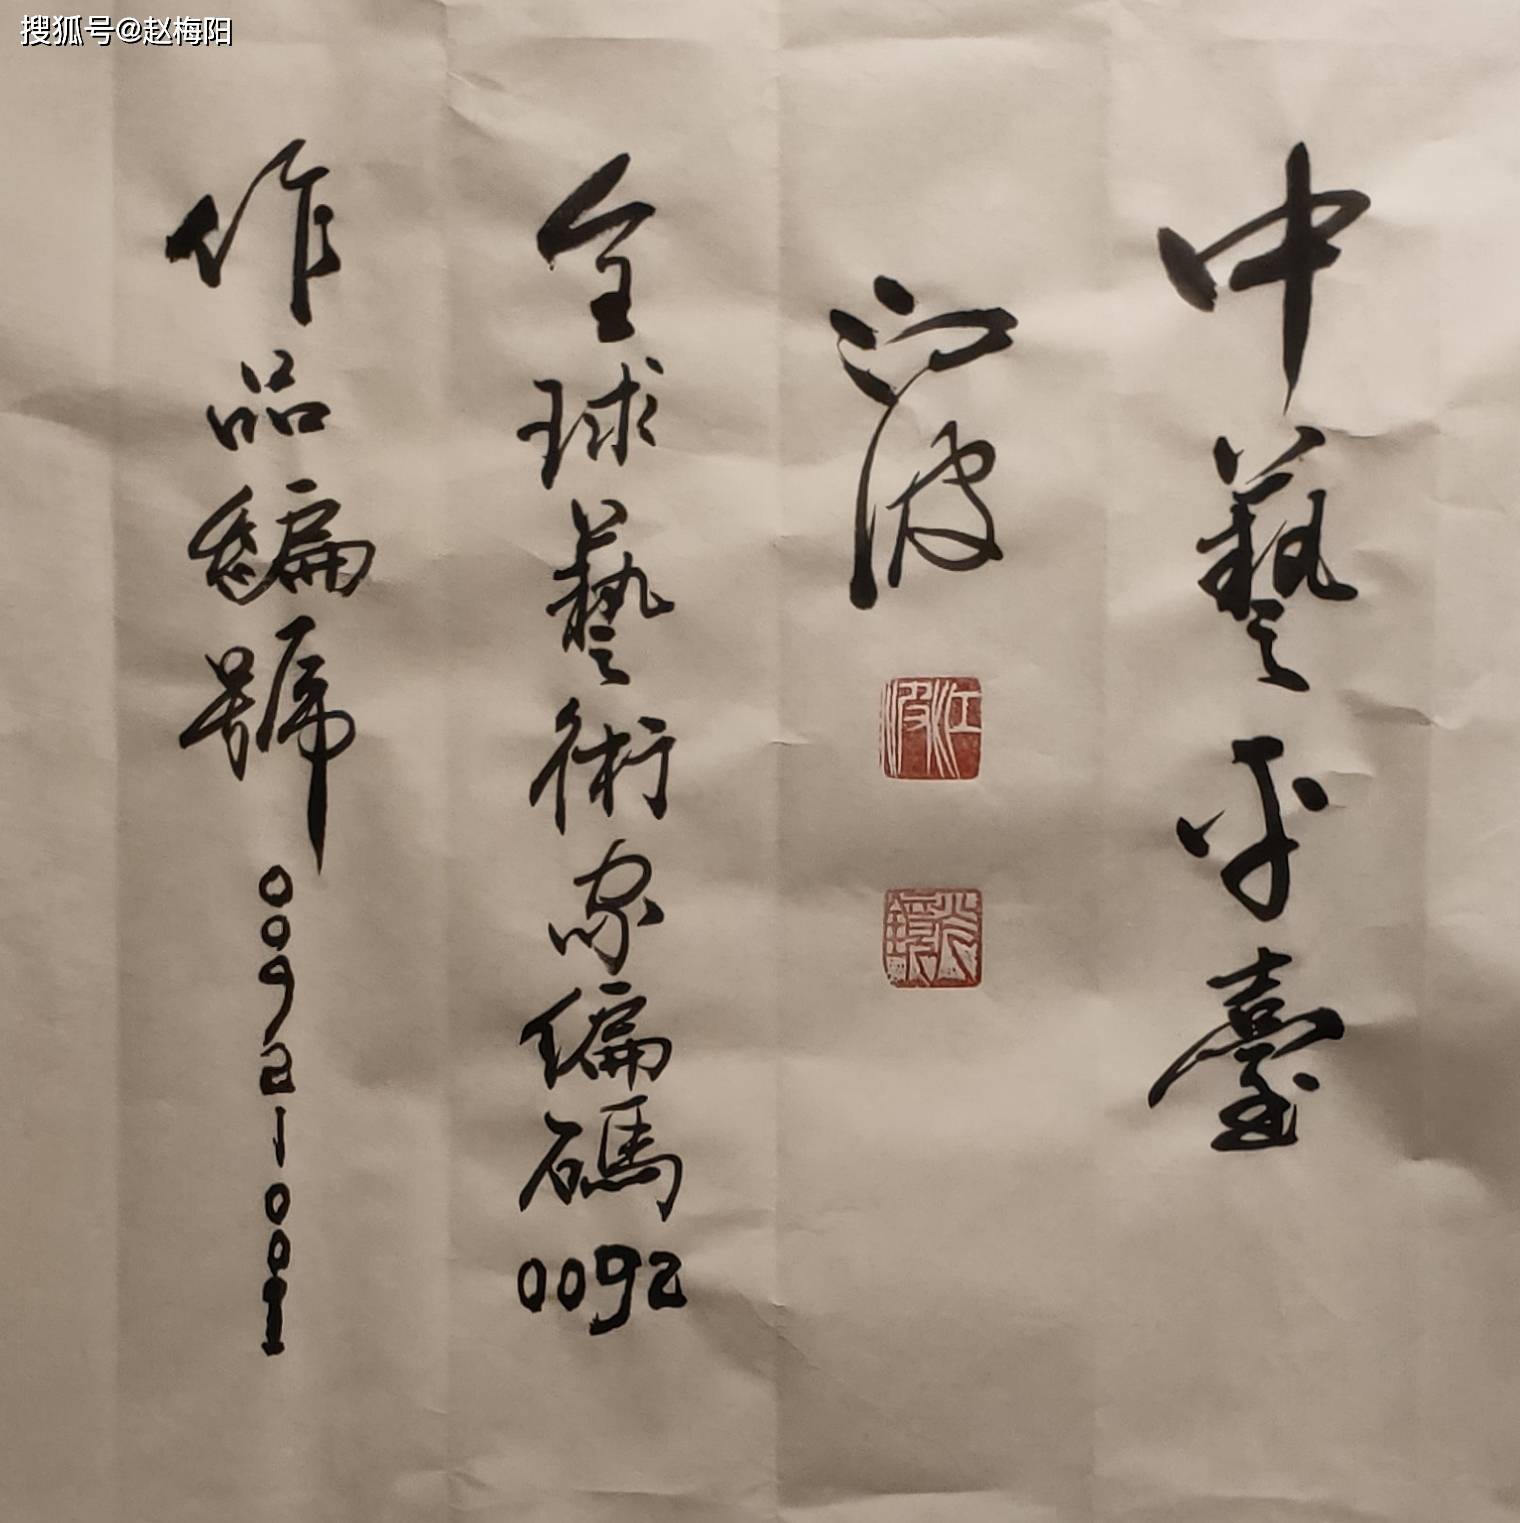 搜狐号@赵梅阳
中藝平臺
江波
江波
全球藝術家编碼0092
作品編號0092-1001